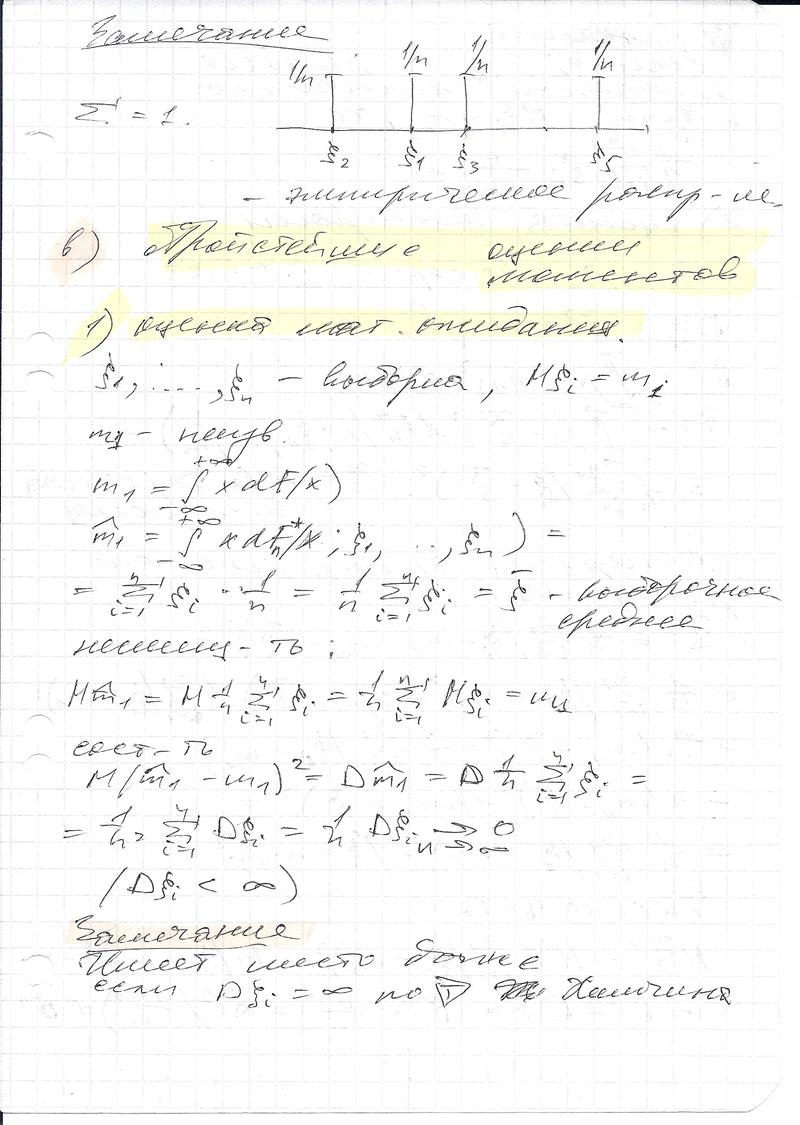 Замечание
1/n 1/n 1/n 1/n
Σ = 1.
ξ2 ξ1 ξ3 ξ5
- эмпирическое распр-ие
в) Простейшие оценки
моментов
1) оценка мат. ожидания.
ξ1, ...., ξn - выборка, Mξi = m1
m1 - неизв.
m1 = ∫_{-∞}^{+∞} x dF(x)
m̂1 = ∫_{-∞}^{+∞} x dF*n(x; ξ1, ..., ξn) =
= Σ_{i=1}^{n} ξi · 1/n = 1/n Σ_{i=1}^{n} ξi = ξ̄ - выборочное
среднее
несмещ-ть:
Mm̂1 = M 1/n Σ_{i=1}^{n} ξi = 1/n Σ_{i=1}^{n} Mξi = m1
сост-ть
M(m̂1 - m1)² = Dm̂1 = D 1/n Σ_{i=1}^{n} ξi =
= 1/n² Σ_{i=1}^{n} Dξi = 1/n Dξi →_{n→∞} 0
(Dξi < ∞)
Замечание
Имеет место даже
если Dξi = ∞ по Т Хинчина